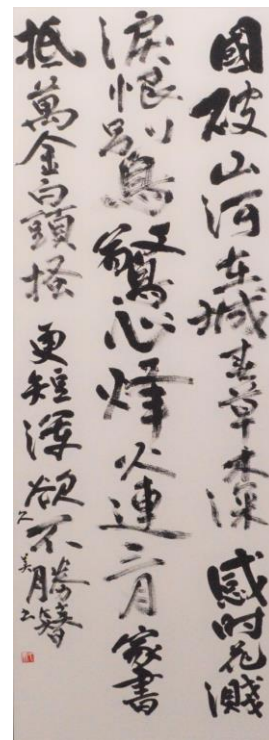 國破山河在城春草木深感時花濺
淚恨別鳥驚心烽火連三月家書
抵萬金白頭搔更短渾欲不勝簪
久美書